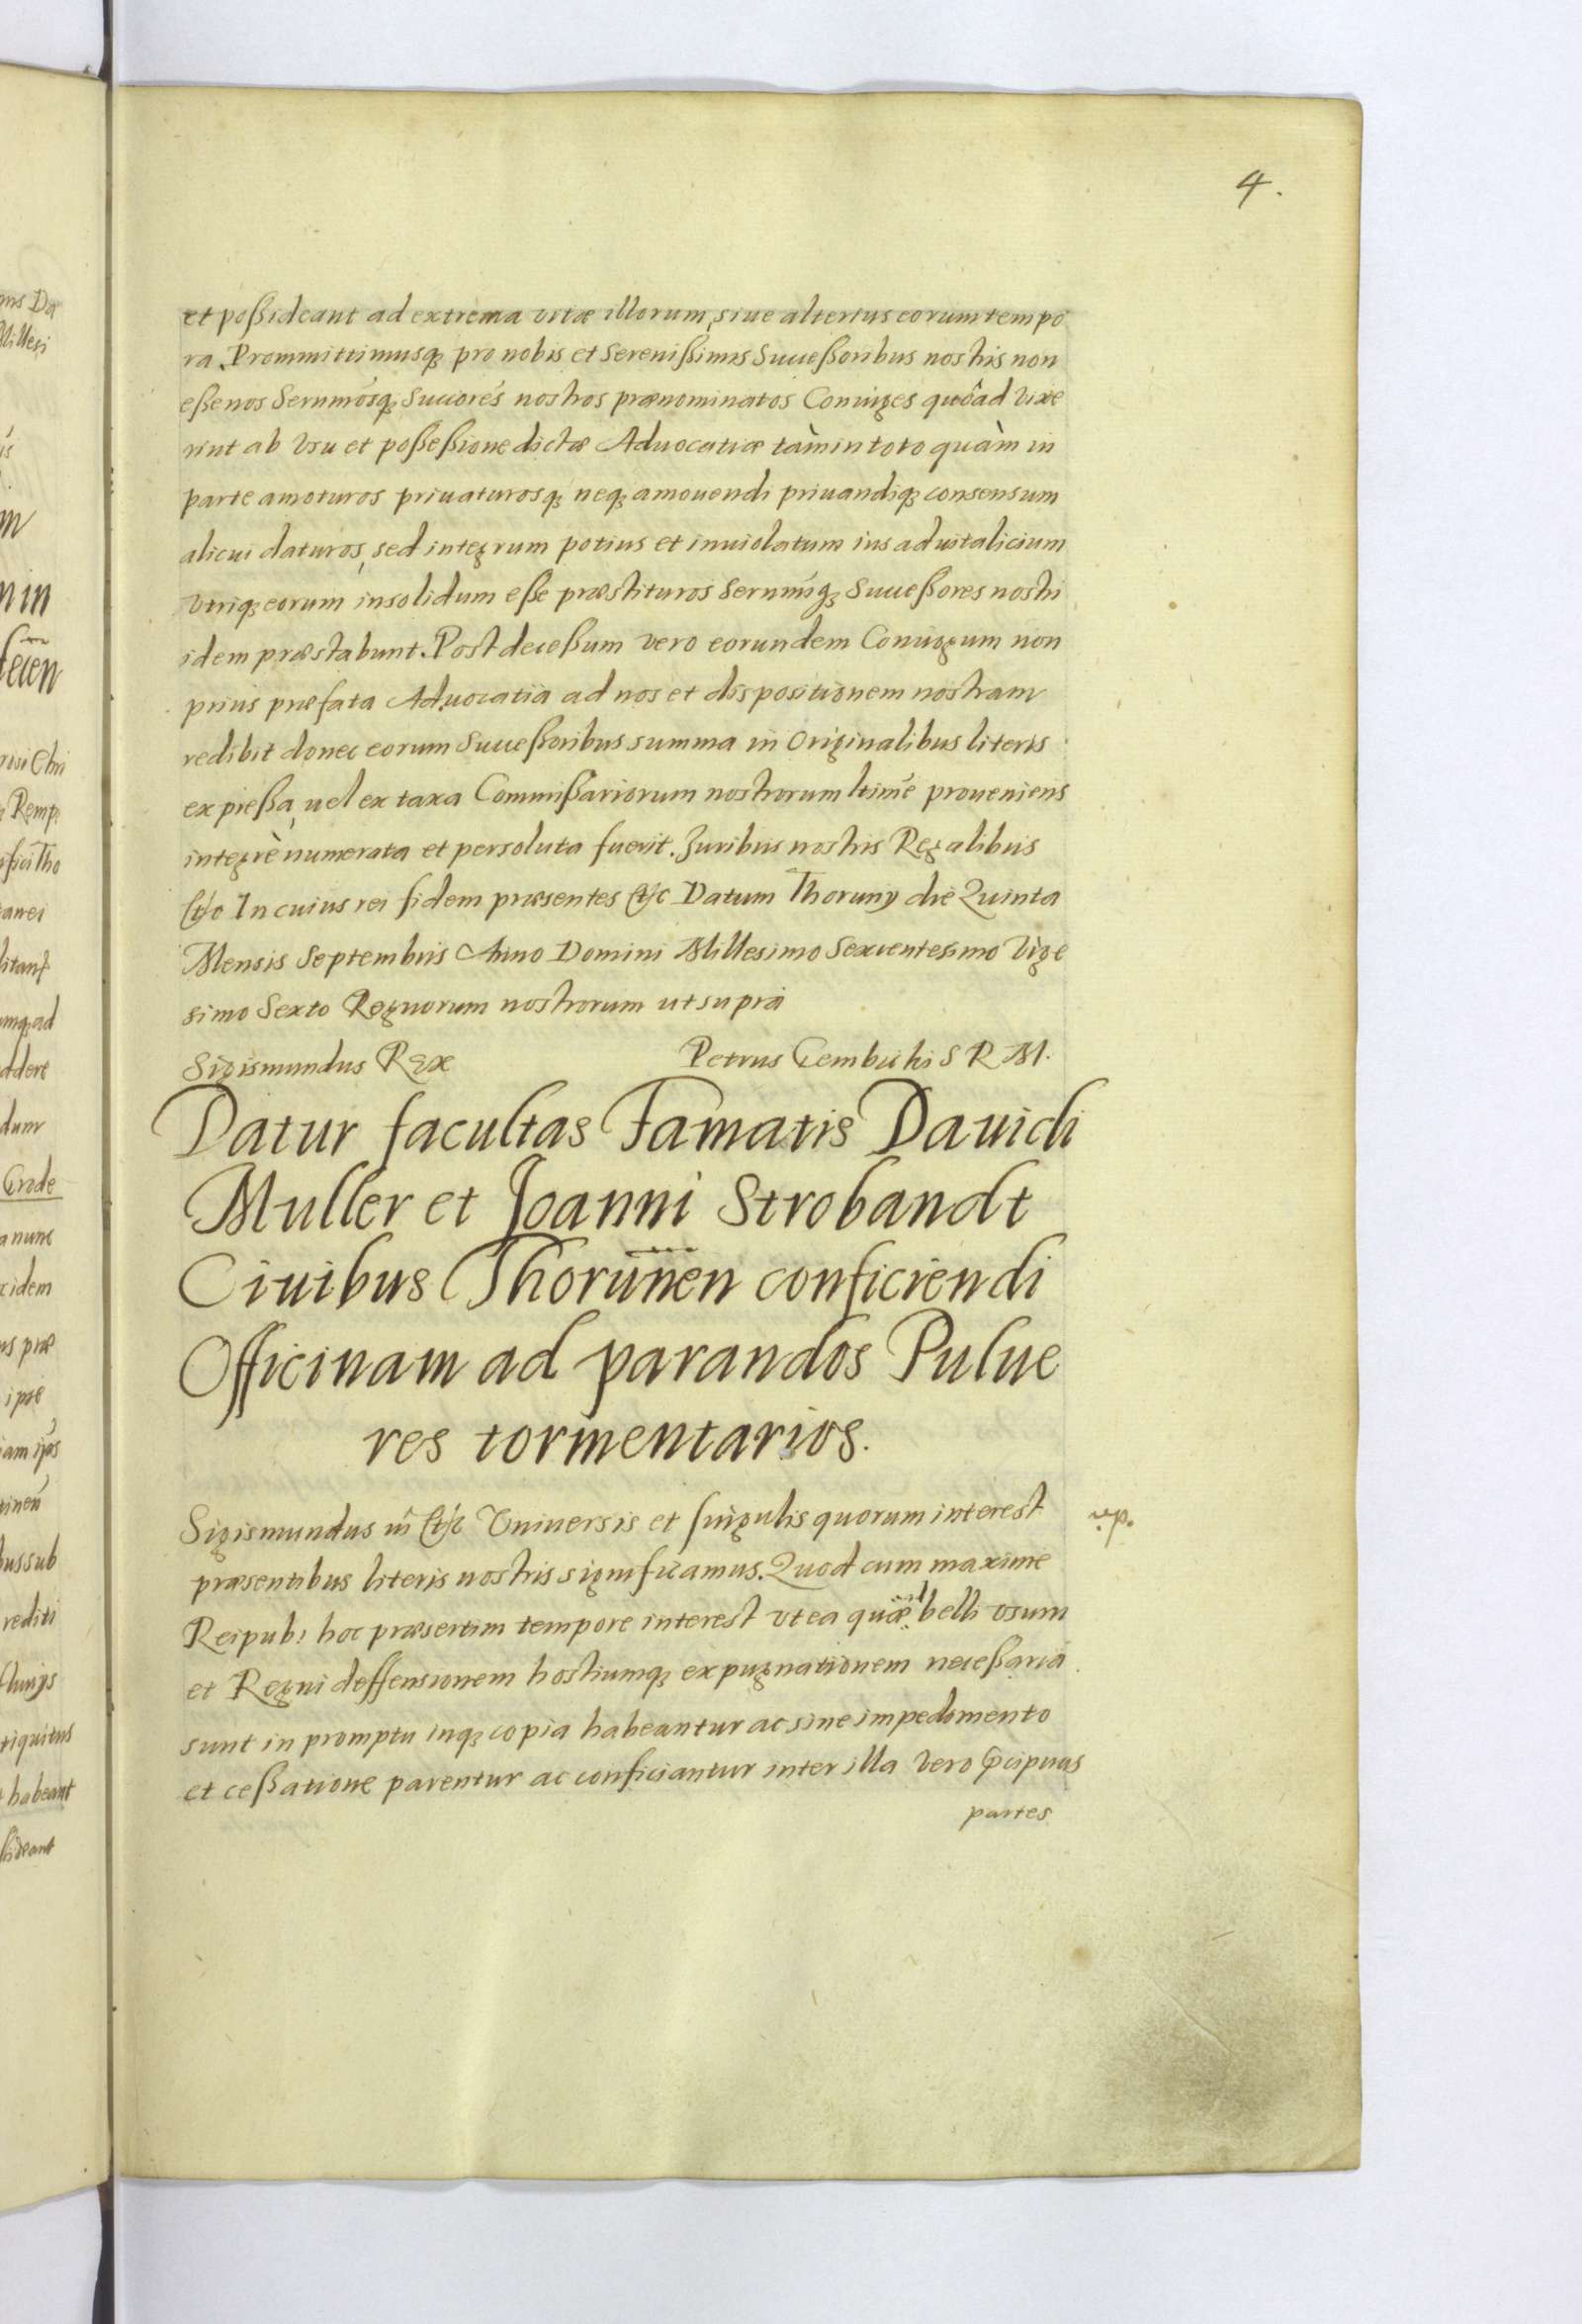 4.
et poßideant ad extrema vitæ illorum, siue alterius eorum tempo
ra. Prommittimusq; pro nobis et Serenißimis Succeßoribus nostris non
eße nos Sernmósq; Succorés nostros prænominatos Coniuges quôad vixe
rint ab vsu et poßeßione dictæ Aduocatiæ tàm in toto quàm in
parte amoturos priuaturosq; neq; amouendi priuandiq; consensum
alicui daturos, sed integrum potius et inuiolatum ius aduitalicium
vtriq; eorum insolidum eße præstituros Sernmíq; Succeßores nostri
idem præstabunt. Post deceßum vero eorundem Coniugum non
prius præfata Aduocatia ad nos et dispositionem nostram
redibit donec eorum Succeßoribus summa in Originalibus literis
expreßa, uel ex taxa Commißariorum nostrorum ltimé proueniens
integrè numerata et persoluta fuerit. Juribus nostris Regalibus
etc In cuius rei fidem præsentes etc Datum Thoruny die Quinta
Mensis Septembris Anno Domini Millesimo Sexcentesimo Vige
simo Sexto Regnorum nostrorum ut supra
Sigismundus Rex Petrus Gembicki S R M.
Datur facultas Famatis Dauidi
Muller et Joanni Strobandt
Ciuibus Thorunen conficiendi
Officinam ad parandos Pulue
res tormentarios.
Sigismundus etc Vniuersis et singulis quorum interest
præsentibus literis nostris significamus. Quod cum maxime
Reipub: hoc præsertim tempore interest vt ea quæ ad belli vsum
et Regni deffensionem hostiumq; expugnationem neceßaria
sunt in promptu inq; copia habeantur ac sine impedimento
et ceßatione parentur ac conficiantur inter illa vero p̃cipuas
partes